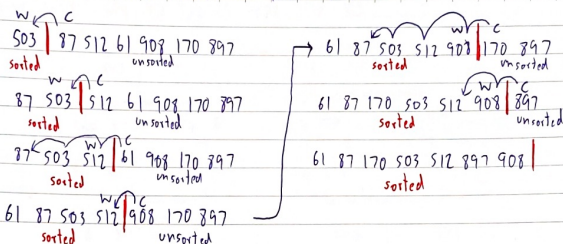 W C
503 87 512 61 908 170 897
sorted unsorted
W C
87 503 512 61 908 170 897
sorted unsorted
W C
87 503 512 61 908 170 897
sorted unsorted
W C
61 87 503 512 908 170 897
sorted unsorted
W C
61 87 503 512 908 170 897
sorted unsorted
W C
61 87 170 503 512 908 897
sorted unsorted
61 87 170 503 512 897 908
sorted